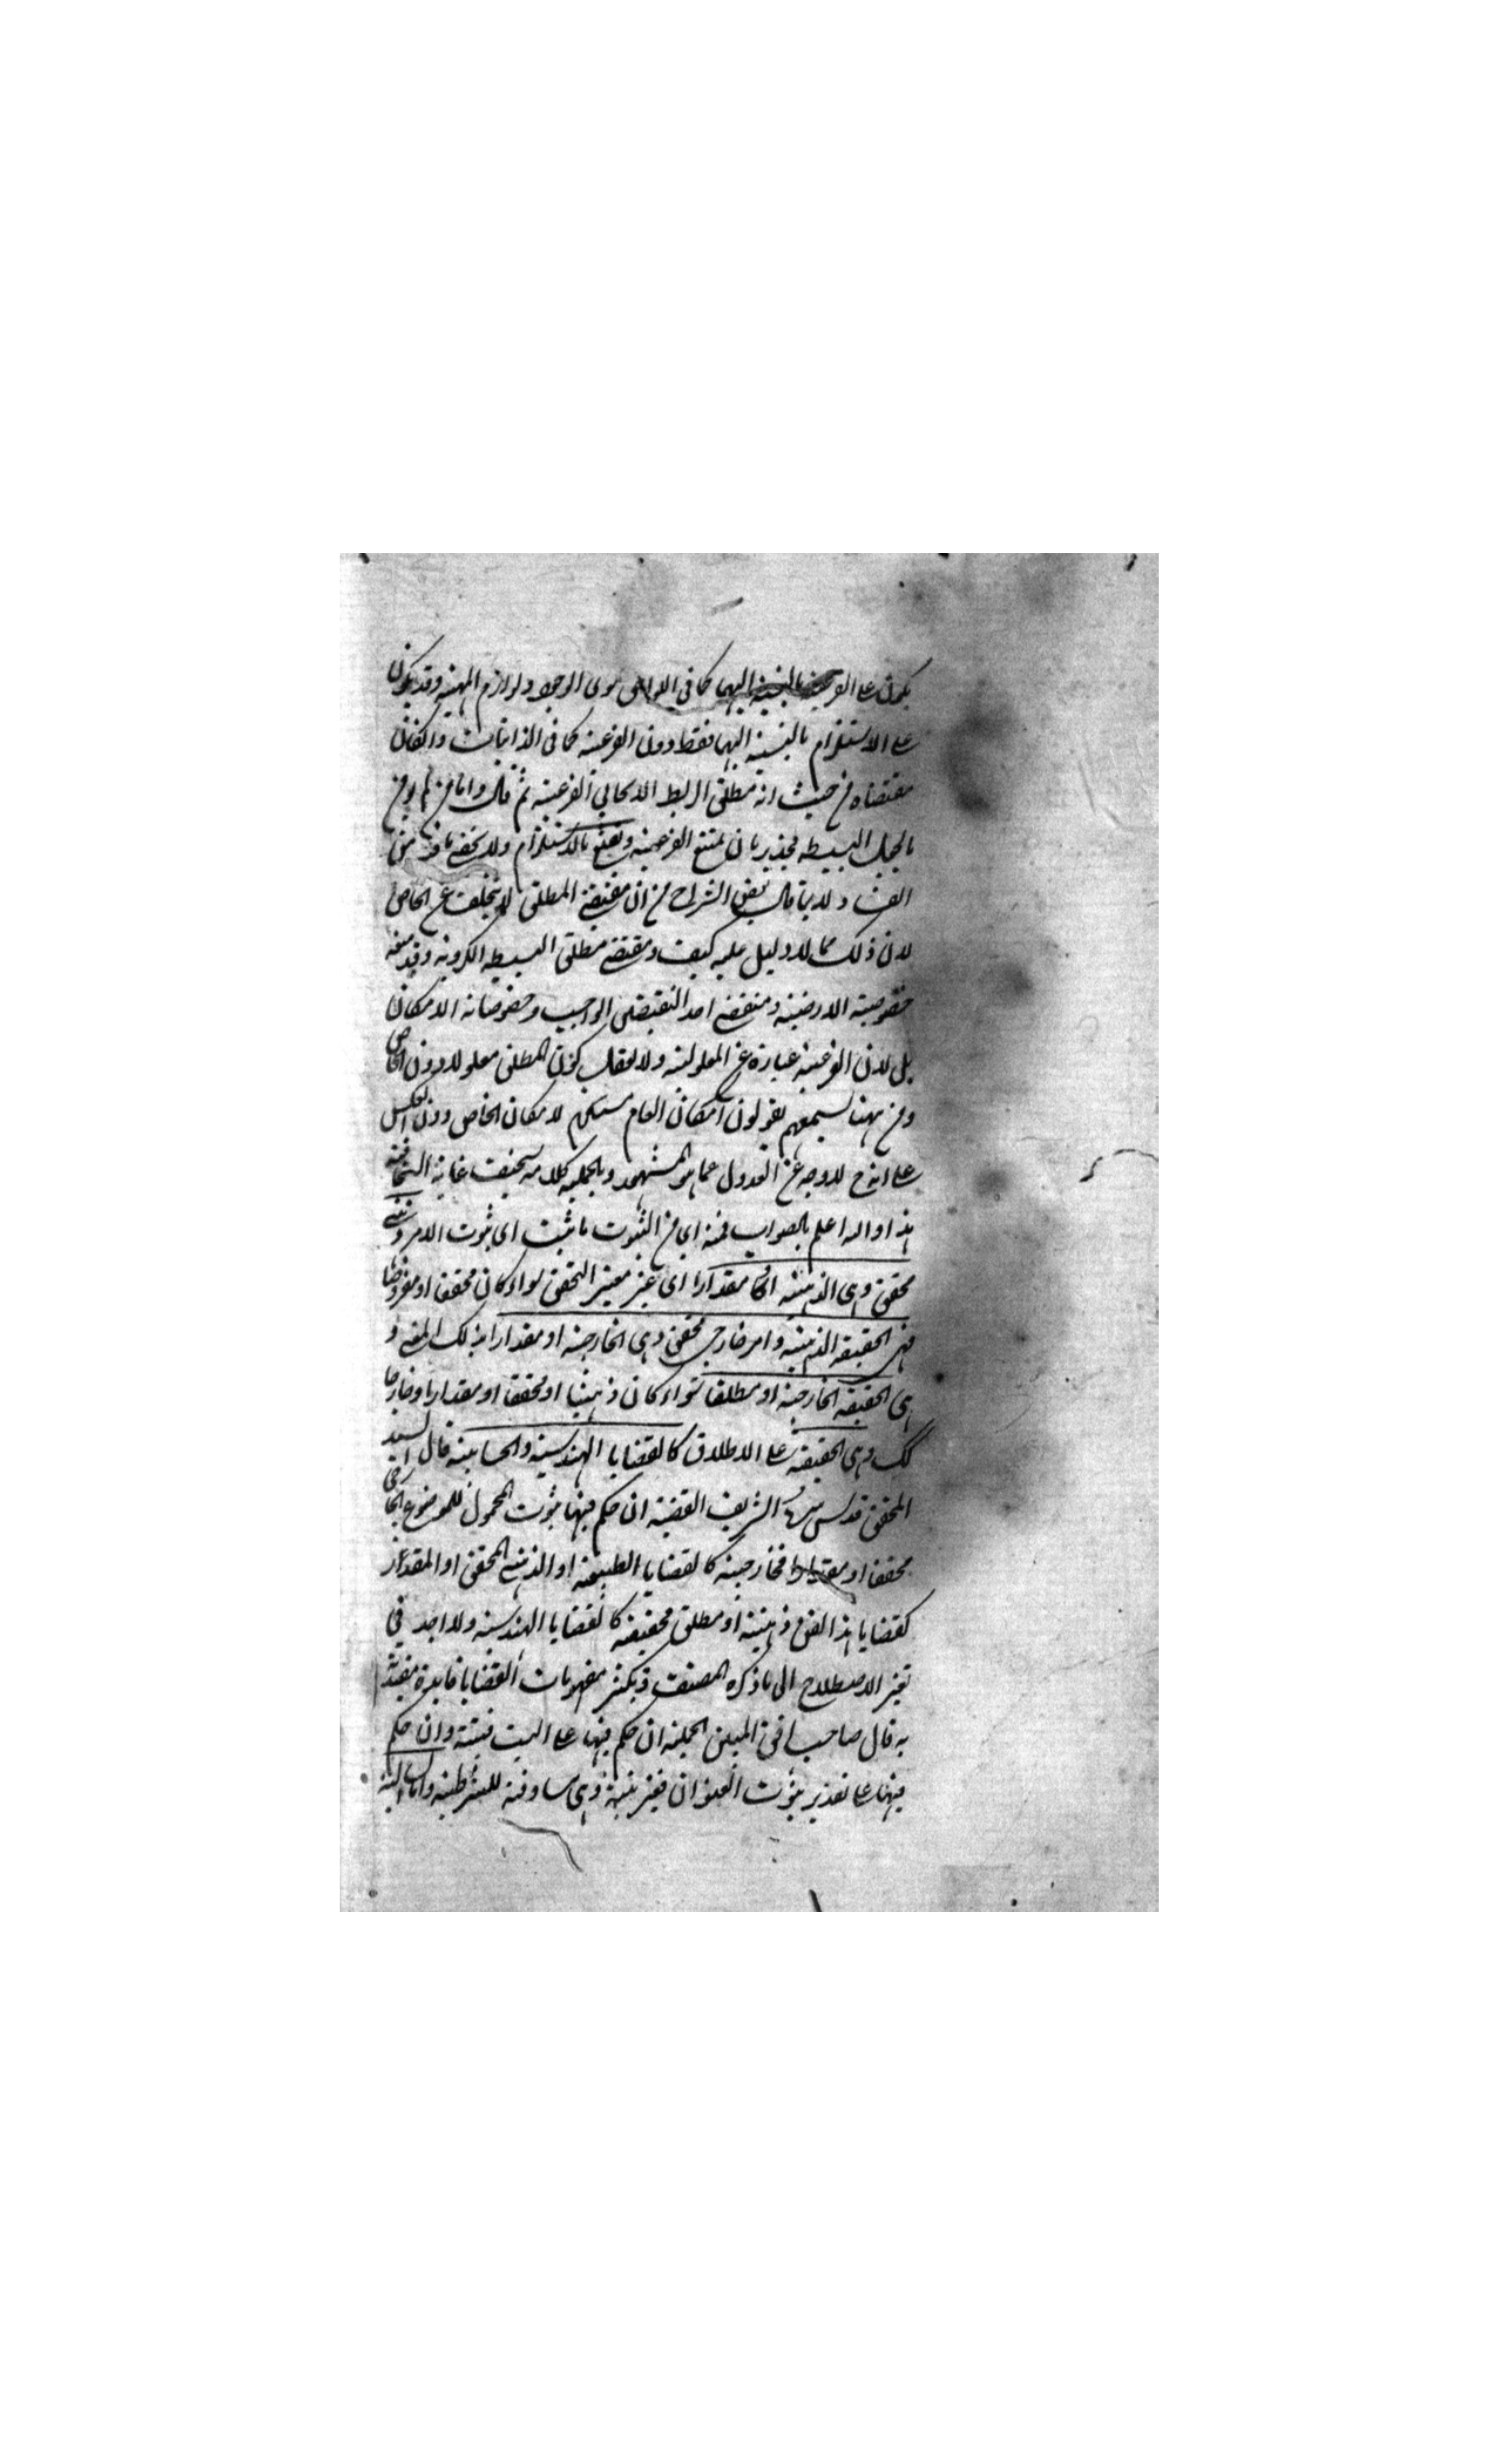 يكون على الفرعية بالنسبة اليهما كما في اللواحق سوى الوجود ولوازم المهية وقد يكون
على الاستلزام بالنسبة اليهما فقط دون الفرعية كما في الذاتيات وان كان
مقتضاه من حيث انه مطلق الربط الايجابي الفرعية ثم قال واما من لم يؤمن
بالجعل البسيط فجدير بان يمنع الفرعية ويقنع بالاستلزام ولا يخفى ما فيه من
الفساد ولا ما قال بعض الشراح من ان مقتضى المطلق لا يتخلف عن الخاص
لان ذلك مما لا دليل عليه كيف ومقتضى مطلق البسيط الكروية وقد منعه
خصوصية الارضية ومقتضى احد النقيضين الواجب وخصوصياته الامكان
بل لان الفرعية عبارة عن المعلولية ولا يعقل كون المطلق معلولا دون الخاص
ومن ههنا تسمعهم يقولون امكان العام مستلزم لامكان الخاص دون العكس
على انه لا وجه عن العدول عما هو المشهور وبالجملة كلامه سخيف غاية السخافة
هذا والله اعلم بالصواب فمنه اي من الثبوت ما ثبت اي ثبوت الامر ذهني
محقق وهي الذهنية او مقدارا اي غير معتبر التحقق سواء كان محققا او مفروضا
فهي الحقيقة الذهنية وامر خارجي محقق وهي الخارجية او مقدارا بذلك المعنى و
هي الحقيقة الخارجية او مطلقا سواء كان ذهنيا او محققا او مقدارا او خارجا
كك وهي الحقيقة على الاطلاق كالقضايا الهندسية والحسابية قال السيد
المحقق قدس سره الشريف القضية ان حكم فيها بثبوت المحمول للموضوع الخارجي
محققا او مقدارا فخارجية كالقضايا الطبيعية او الذهني المحقق او المقدار
كقضايا هذا الفن ذهنية او مطلق فحقيقة كالقضايا الهندسية ولا اجد في
تغير الاصطلاح الى ما ذكره المصنف وتكثر مفهومات القضايا فائدة معتدة
به قال صاحب افق المبين الحملية ان حكم فيها على البت فبتية وان حكم
فيها على تقدير ثبوت العنوان فغير بتية وهي مساوقة للشرطية واما السالبة